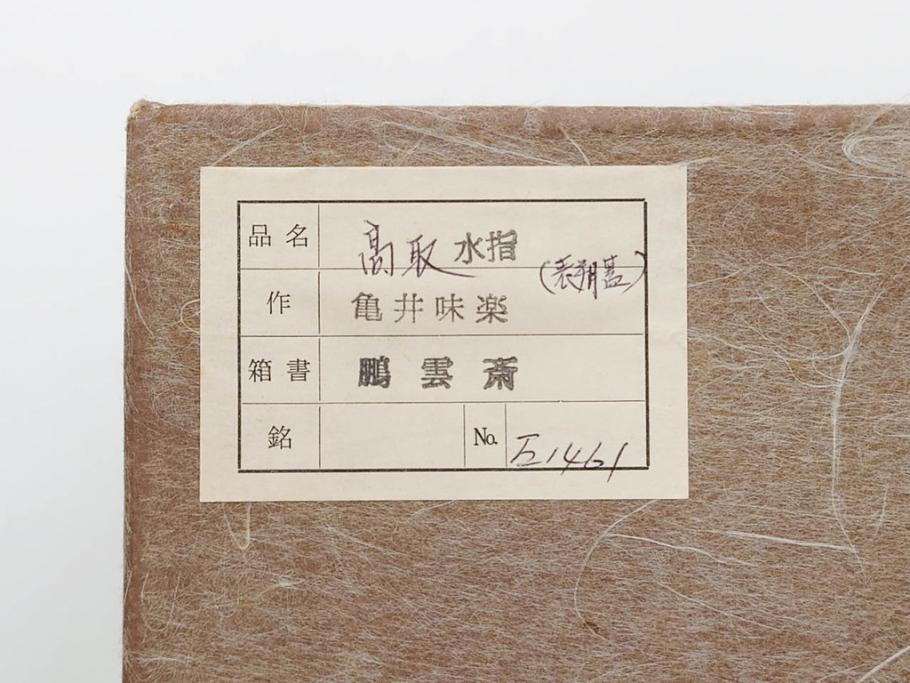 品名 高取 水指
(表朔蓋)
作 亀井味楽
箱書 鵬雲斎
銘 No. E1461